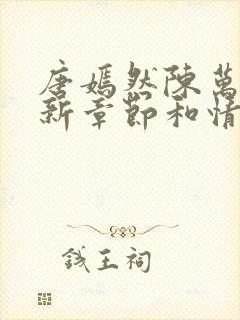 唐嫣然陳萬
新章節和情
錢王祠